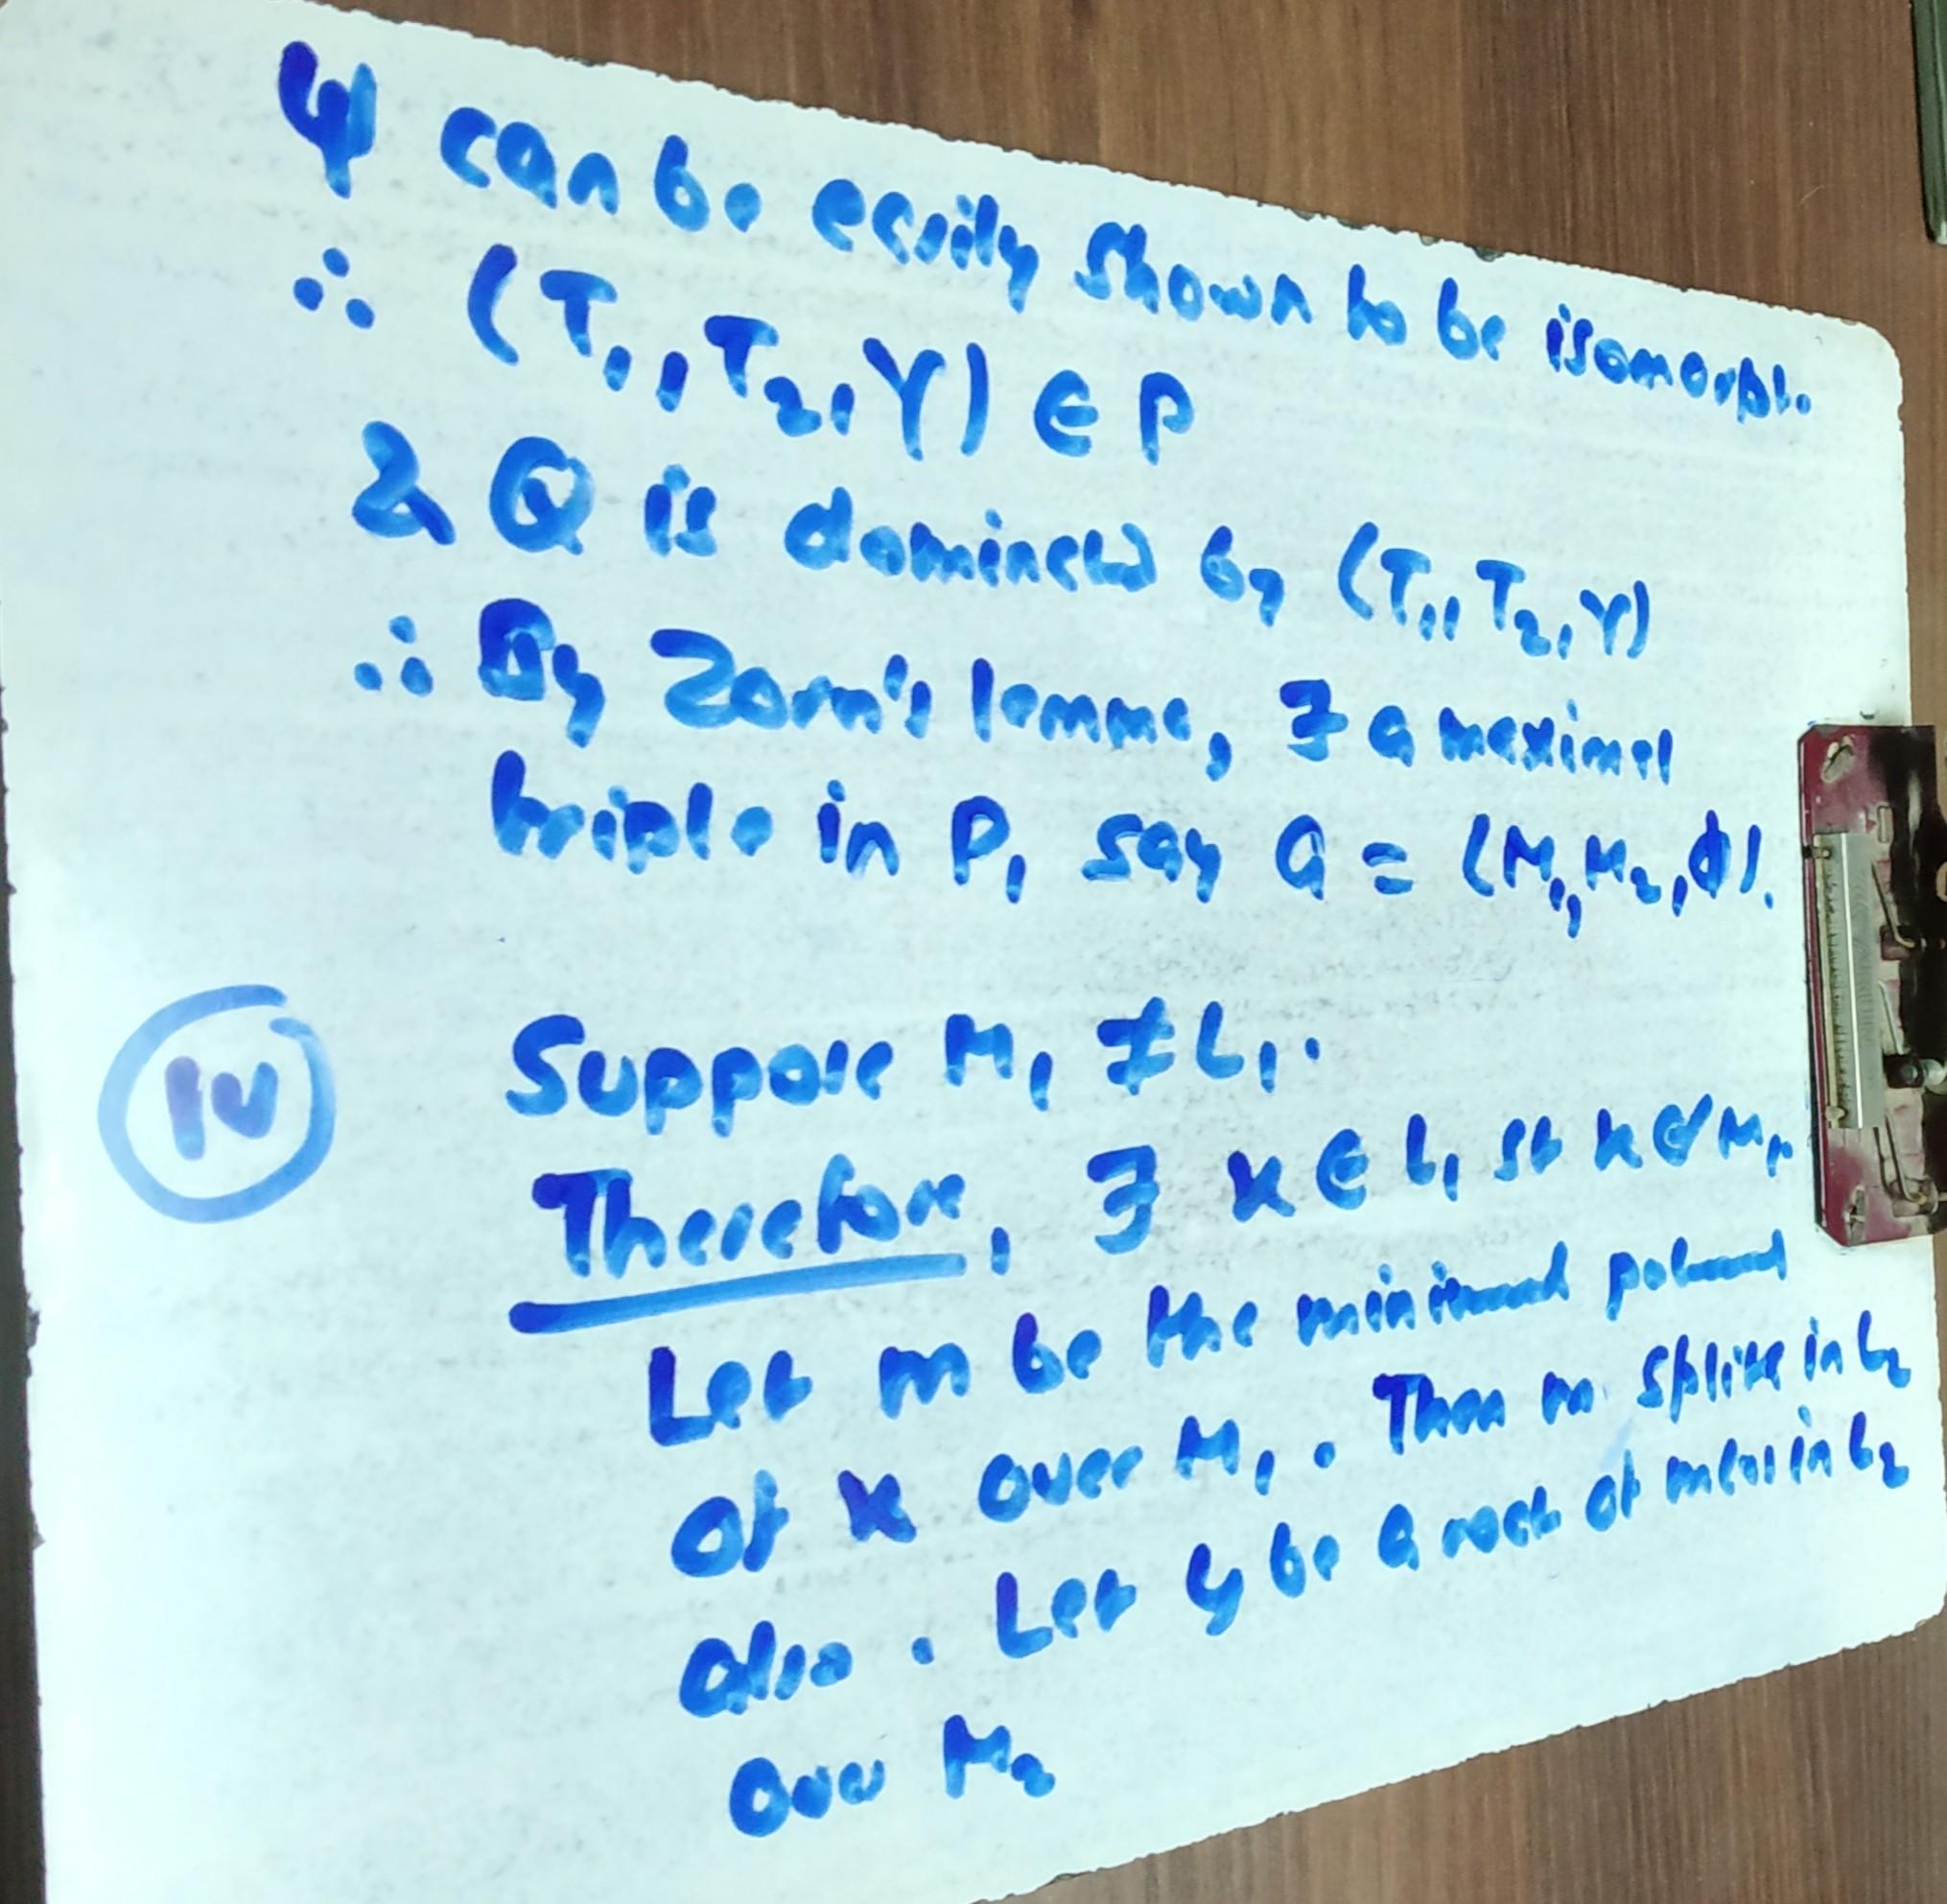 ψ can be easily shown to be isomorph.
∴ (T₁, T₂, Y) ∈ P
& Q is dominated by (T₁, T₂, Y)
∴ By Zorn's lemma, ∃ a maximal
triple in P, say Q = (M₁, M₂, φ).
IV Suppose M₁ ≠ L₁.
Therefore, ∃ x ∈ L₁ st x ∉ M₁.
Let m be the minimal
of x over M₁. Then m splits in L₂
also. Let y be a root of in L₂
over M₂